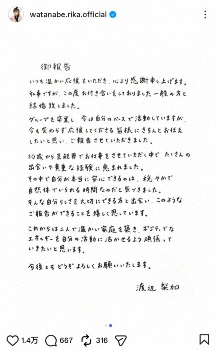 watanabe.rika.official
御報告
いつも温かい応援をいただき、心より感謝申し上げます。
私事ですが、この度お付き合いをしておりました一般の方と
結婚致しました。
グループを卒業し、今は自分のペースで活動していますが、
今も変わらず応援してくださる皆様にきちんとお伝え
したいと思い、ご報告させていただきました。
10代から芸能界でお仕事をさせていただく中で、たくさんの
出会いや貴重な経験に恵まれました。
その中で自分が本当に安心できるのは、穏やかで
自然体でいられる時間なのだと気づきました。
そんな自分らしさを大切にできる方と出会い、このような
ご報告ができることを嬉しく思っています。
これからは二人で温かい家庭を築き、ポジティブな
エネルギーを自分の活動に活かせるよう頑張って
いきたいと思います。
今後ともどうぞよろしくお願いいたします。
渡辺梨加
1.4万 667 316 166